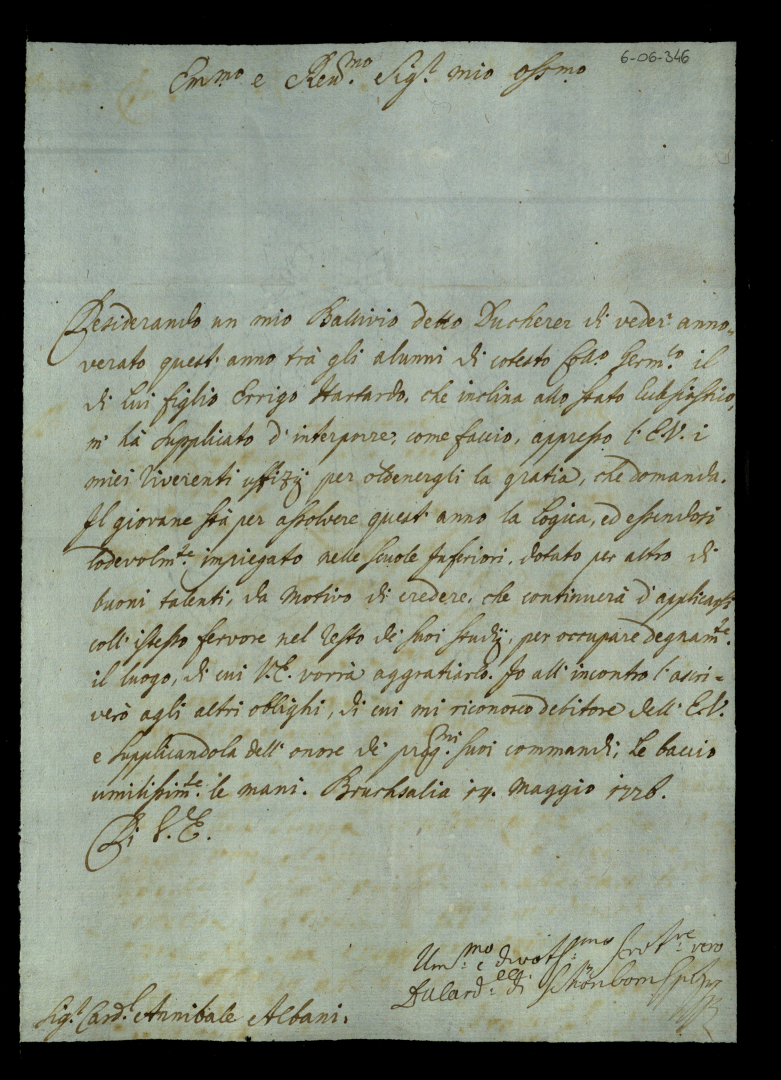 6-06-346
Em.mo e Rev.mo Sig.r mio oss.mo
Desiderando un mio Ballivio detto Ducherer di veder anno=
verato quest' anno trà gli alunni di cotesto Coll.o Germ.co il
di lui figlio Errigo Hartardo, che inclina allo stato Eccl​esiastico,
m' hà supplicato d' interporre, come faccio, appresso l' E.V. i
miei riverenti uffizij per ottenergli la gratia, che domanda.
Il giovane stà per assolvere quest' anno la Logica, ed essendosi
lodevolm.te impiegato nelle scuole Inferiori, dotato per altro di
buoni talenti, da motivo di credere, che continuerà d' applicagli
coll' istesso fervore nel resto de' suoi studij, per occupare degnam.te
il luogo, di cui V.E. vorrà aggratiarlo. Io all' incontro l' ascri=
verò agli altri oblighi, di cui mi riconosco debitore dell' E.V.
e supplicandola dell' onore de' preg.mi suoi commandi, Le baccio
umilissim.te le mani. Bruchsalia 14. Maggio 1726.
Di V.E.
Um.mo e divotiss.mo serv.re vero
Il Card.le di Schönborn
Sig.r Card.l Annibale Albani.